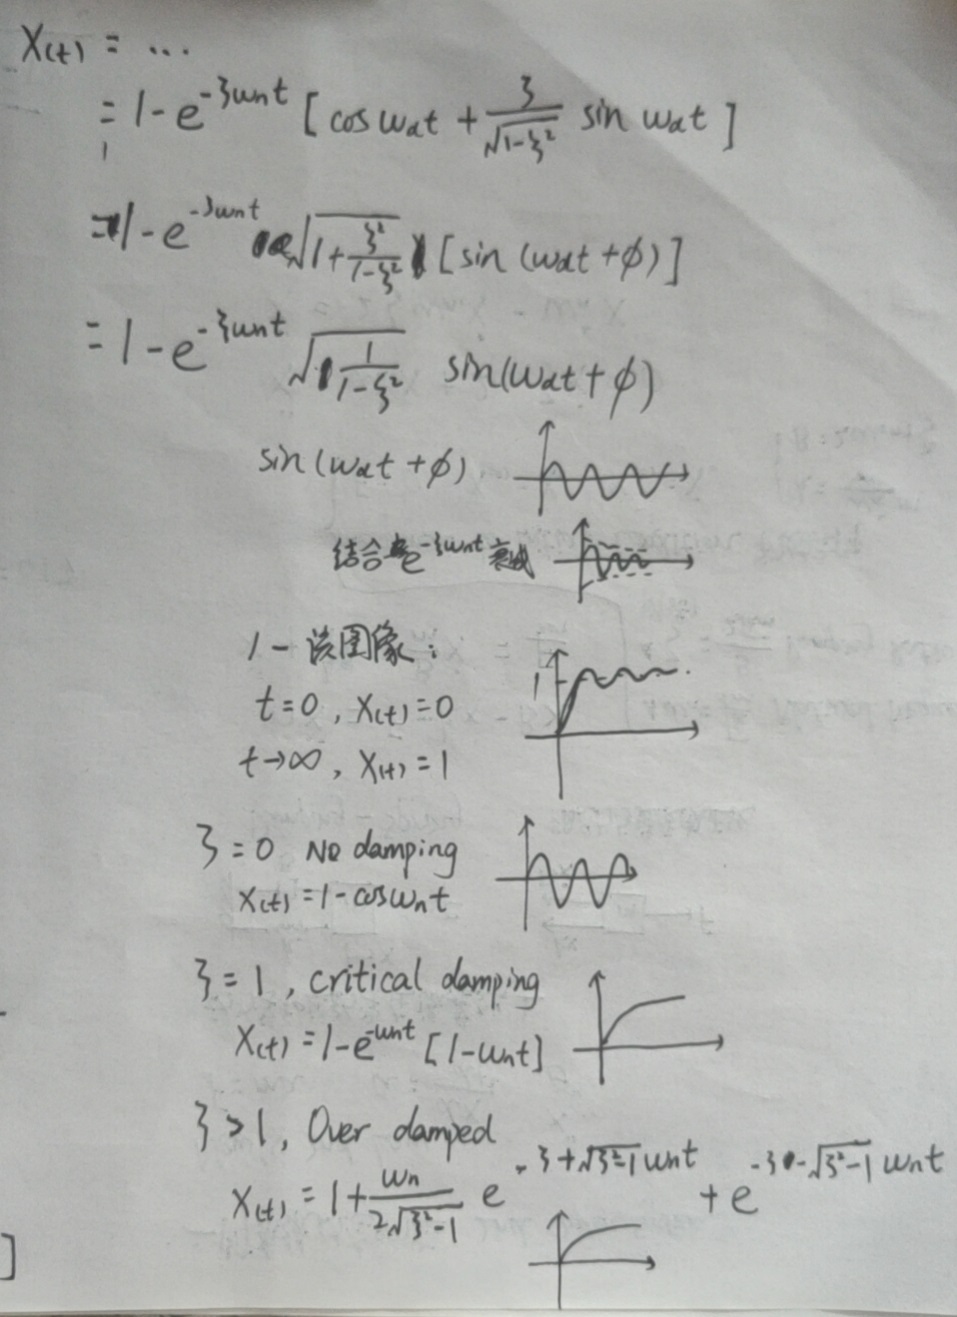 X(t) = ...
= 1 - e^{-ξωnt} [cos ωdt + ξ/√(1-ξ²) sin ωdt]
= 1 - e^{-ξωnt} √(1 + ξ²/(1-ξ²)) [sin (ωdt + φ)]
= 1 - e^{-ξωnt} √(1/(1-ξ²)) sin(ωdt + φ)
sin(ωdt + φ)
结合 e^{-ξωnt} 衰减
1 - 该图像:
1
t=0, X(t)=0
t→∞, X(t)=1
ξ=0 No damping
X(t)=1-cosωnt
ξ=1, critical damping
X(t)=1-e^{-ωnt} [1-ωnt]
ξ>1, Over damped
X(t) = 1 + ωn/(2√(ξ²-1)) e^{-ξ+√(ξ²-1) ωnt} + e^{-ξ-√(ξ²-1) ωnt}
]